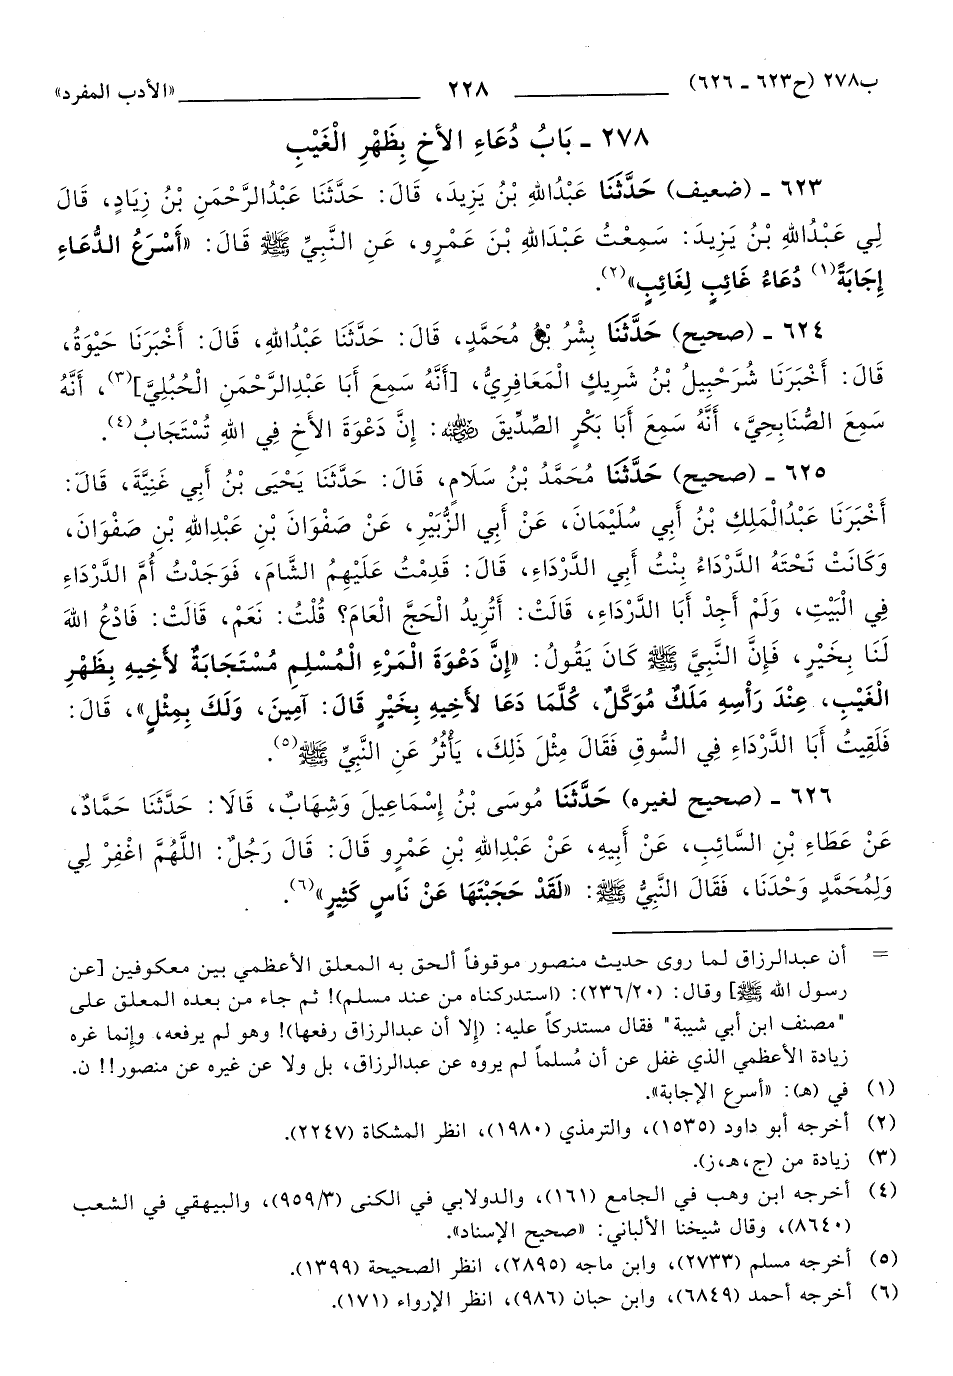 ب٢٧٨ (ح٦٢٣ ـ ٦٢٦) ٢٢٨ «الأدب المفرد»
٢٧٨ ـ بَابُ دُعَاءِ الأخِ بِظَهْرِ الْغَيْبِ
٦٢٣ ـ (ضعيف) حَدَّثَنَا عَبْدُاللهِ بْنُ يَزِيدَ، قَالَ: حَدَّثَنَا عَبْدُالرَّحْمَنِ بْنُ زِيَادٍ، قَالَ
لِي عَبْدُاللهِ بْنُ يَزِيدَ: سَمِعْتُ عَبْدَاللهِ بْنَ عَمْرٍو، عَنِ النَّبِيِّ ﷺ قَالَ: «أَسْرَعُ الدُّعَاءِ
إِجَابَةً(١) دُعَاءُ غَائِبٍ لِغَائِبٍ»(٢).
٦٢٤ ـ (صحيح) حَدَّثَنَا بِشْرُ بْنُ مُحَمَّدٍ، قَالَ: حَدَّثَنَا عَبْدُاللهِ، قَالَ: أَخْبَرَنَا حَيْوَةُ،
قَالَ: أَخْبَرَنَا شُرَحْبِيلُ بْنُ شَرِيكٍ الْمَعَافِرِيُّ، [أَنَّهُ سَمِعَ أَبَا عَبْدِالرَّحْمَنِ الْحُبُلِيَّ](٣)، أَنَّهُ
سَمِعَ الصُّنَابِحِيَّ، أَنَّهُ سَمِعَ أَبَا بَكْرٍ الصِّدِّيقَ ﵁: إِنَّ دَعْوَةَ الأخِ فِي اللهِ تُسْتَجَابُ(٤).
٦٢٥ ـ (صحيح) حَدَّثَنَا مُحَمَّدُ بْنُ سَلَامٍ، قَالَ: حَدَّثَنَا يَحْيَى بْنُ أَبِي غَنِيَّةَ، قَالَ:
أَخْبَرَنَا عَبْدُالْمَلِكِ بْنُ أَبِي سُلَيْمَانَ، عَنْ أَبِي الزُّبَيْرِ، عَنْ صَفْوَانَ بْنِ عَبْدِاللهِ بْنِ صَفْوَانَ،
وَكَانَتْ تَحْتَهُ الدَّرْدَاءُ بِنْتُ أَبِي الدَّرْدَاءِ، قَالَ: قَدِمْتُ عَلَيْهِمُ الشَّامَ، فَوَجَدْتُ أُمَّ الدَّرْدَاءِ
فِي الْبَيْتِ، وَلَمْ أَجِدْ أَبَا الدَّرْدَاءِ، قَالَتْ: أَتُرِيدُ الْحَجَّ الْعَامَ؟ قُلْتُ: نَعَمْ، قَالَتْ: فَادْعُ اللهَ
لَنَا بِخَيْرٍ، فَإِنَّ النَّبِيَّ ﷺ كَانَ يَقُولُ: «إِنَّ دَعْوَةَ الْمَرْءِ الْمُسْلِمِ مُسْتَجَابَةٌ لأخِيهِ بِظَهْرِ
الْغَيْبِ، عِنْدَ رَأْسِهِ مَلَكٌ مُوَكَّلٌ، كُلَّمَا دَعَا لأخِيهِ بِخَيْرٍ قَالَ: آمِينَ، وَلَكَ بِمِثْلٍ»، قَالَ:
فَلَقِيتُ أَبَا الدَّرْدَاءِ فِي السُّوقِ فَقَالَ مِثْلَ ذَلِكَ، يَأْثُرُ عَنِ النَّبِيِّ ﷺ(٥).
٦٢٦ ـ (صحيح لغيره) حَدَّثَنَا مُوسَى بْنُ إِسْمَاعِيلَ وَشِهَابٌ، قَالَا: حَدَّثَنَا حَمَّادٌ،
عَنْ عَطَاءِ بْنِ السَّائِبِ، عَنْ أَبِيهِ، عَنْ عَبْدِاللهِ بْنِ عَمْرٍو قَالَ: قَالَ رَجُلٌ: اللَّهُمَّ اغْفِرْ لِي
وَلِمُحَمَّدٍ وَحْدَنَا، فَقَالَ النَّبِيُّ ﷺ: «لَقَدْ حَجَبْتَهَا عَنْ نَاسٍ كَثِيرٍ»(٦).
= أن عبدالرزاق لما روى حديث منصور موقوفاً ألحق به المعلق الأعظمي بين معكوفين [عن
رسول الله ﷺ] وقال: (٢٣٦/٢٠): (استدركناه من عند مسلم)! ثم جاء من بعده المعلق على
"مصنف ابن أبي شيبة" فقال مستدركاً عليه: (إلا أن عبدالرزاق رفعها)! وهو لم يرفعه، وإنما غره
زيادة الأعظمي الذي غفل عن أن مُسلماً لم يروه عن عبدالرزاق، بل ولا عن غيره عن منصور!! ن.
(١) في (هـ): «أسرع الإجابة».
(٢) أخرجه أبو داود (١٥٣٥)، والترمذي (١٩٨٠)، انظر المشكاة (٢٢٤٧).
(٣) زيادة من (ج، هـ، ز).
(٤) أخرجه ابن وهب في الجامع (١٦١)، والدولابي في الكنى (٩٥٩/٣)، والبيهقي في الشعب
(٨٦٤٠)، وقال شيخنا الألباني: «صحيح الإسناد».
(٥) أخرجه مسلم (٢٧٣٣)، وابن ماجه (٢٨٩٥)، انظر الصحيحة (١٣٩٩).
(٦) أخرجه أحمد (٦٨٤٩)، وابن حبان (٩٨٦)، انظر الإرواء (١٧١).